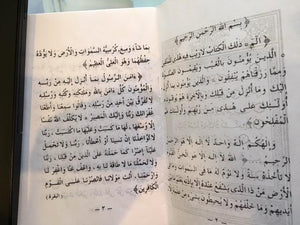 ﴿ بِسْمِ اللهِ الرَّحْمٰنِ الرَّحِيمِ ﴾
﴿ الٓمٓ * ذٰلِكَ الْكِتَابُ لَارَيْبَ فِيهِ
الَّذِينَ يُؤْمِنُونَ بِالْغَيْبِ وَيُقِيمُونَ
وَمِمَّا رَزَقْنَاهُمْ يُنْفِقُونَ * وَالَّذِينَ يُؤْمِنُونَ
أُولٰٓئِكَ عَلٰى هُدًى مِنْ رَبِّهِمْ
الْمُفْلِحُونَ ﴾
وَإِلٰهُكُمْ إِلٰهٌ وَاحِدٌ لَا إِلٰهَ إِلَّا
اللهُ لَا إِلٰهَ إِلَّا هُوَ الْحَيُّ
سِنَةٌ وَلَا نَوْمٌ لَهُ مَا فِي
الْأَرْضِ مَنْ ذَا الَّذِي يَشْفَعُ عِنْدَهُ
أَيْدِيهِمْ وَمَا خَلْفَهُمْ وَلَا يُحِيطُونَ
بِمَا شَاءَ وَسِعَ كُرْسِيُّهُ السَّمٰوَاتِ وَالْأَرْضَ وَلَا يَؤُدُهُ
حِفْظُهُمَا وَهُوَ الْعَلِيُّ الْعَظِيمُ ﴾
﴿ ءَامَنَ الرَّسُولُ بِمَا أُنْزِلَ إِلَيْهِ مِنْ رَبِّهِ
وَالْمُؤْمِنُونَ كُلٌّ ءَامَنَ بِاللهِ وَمَلٰئِكَتِهِ وَكُتُبِهِ وَرُسُلِهِ
لَا نُفَرِّقُ بَيْنَ أَحَدٍ مِنْ رُسُلِهِ وَقَالُوا سَمِعْنَا وَأَطَعْنَا
غُفْرَانَكَ رَبَّنَا وَإِلَيْكَ الْمَصِيرُ * لَا يُكَلِّفُ اللهُ نَفْسًا
إِلَّا وُسْعَهَا لَهَا مَا كَسَبَتْ وَعَلَيْهَا مَا اكْتَسَبَتْ رَبَّنَا
لَا تُؤَاخِذْنَا إِنْ نَسِينَا أَوْ أَخْطَأْنَا رَبَّنَا وَلَا تَحْمِلْ
عَلَيْنَا إِصْرًا كَمَا حَمَلْتَهُ عَلَى الَّذِينَ مِنْ قَبْلِنَا رَبَّنَا
وَلَا تُحَمِّلْنَا مَا لَا طَاقَةَ لَنَا بِهِ وَاعْفُ عَنَّا وَاغْفِرْ لَنَا
وَارْحَمْنَا أَنْتَ مَوْلَانَا فَانْصُرْنَا عَلَى الْقَوْمِ
الْكَافِرِينَ ﴾ (البقرة)
– ٣ –